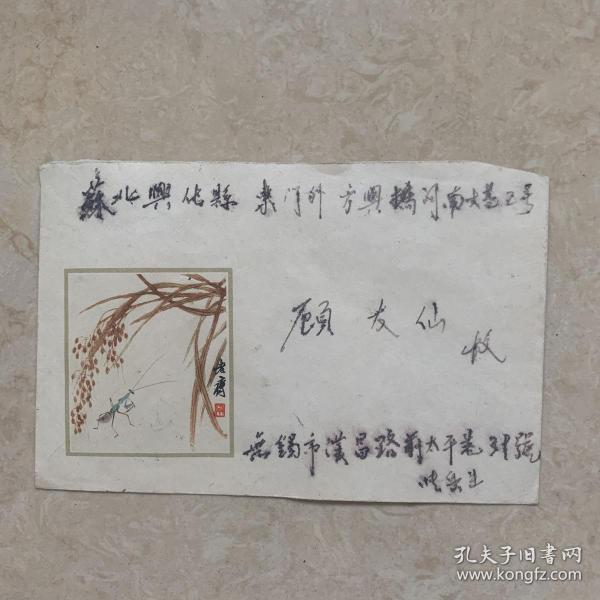 蘇北興化縣 東門外 方興橋河南大巷2号
顧友仙 收
無錫市漢昌路前太平巷 號
孔夫子旧書网
www.kongfz.com